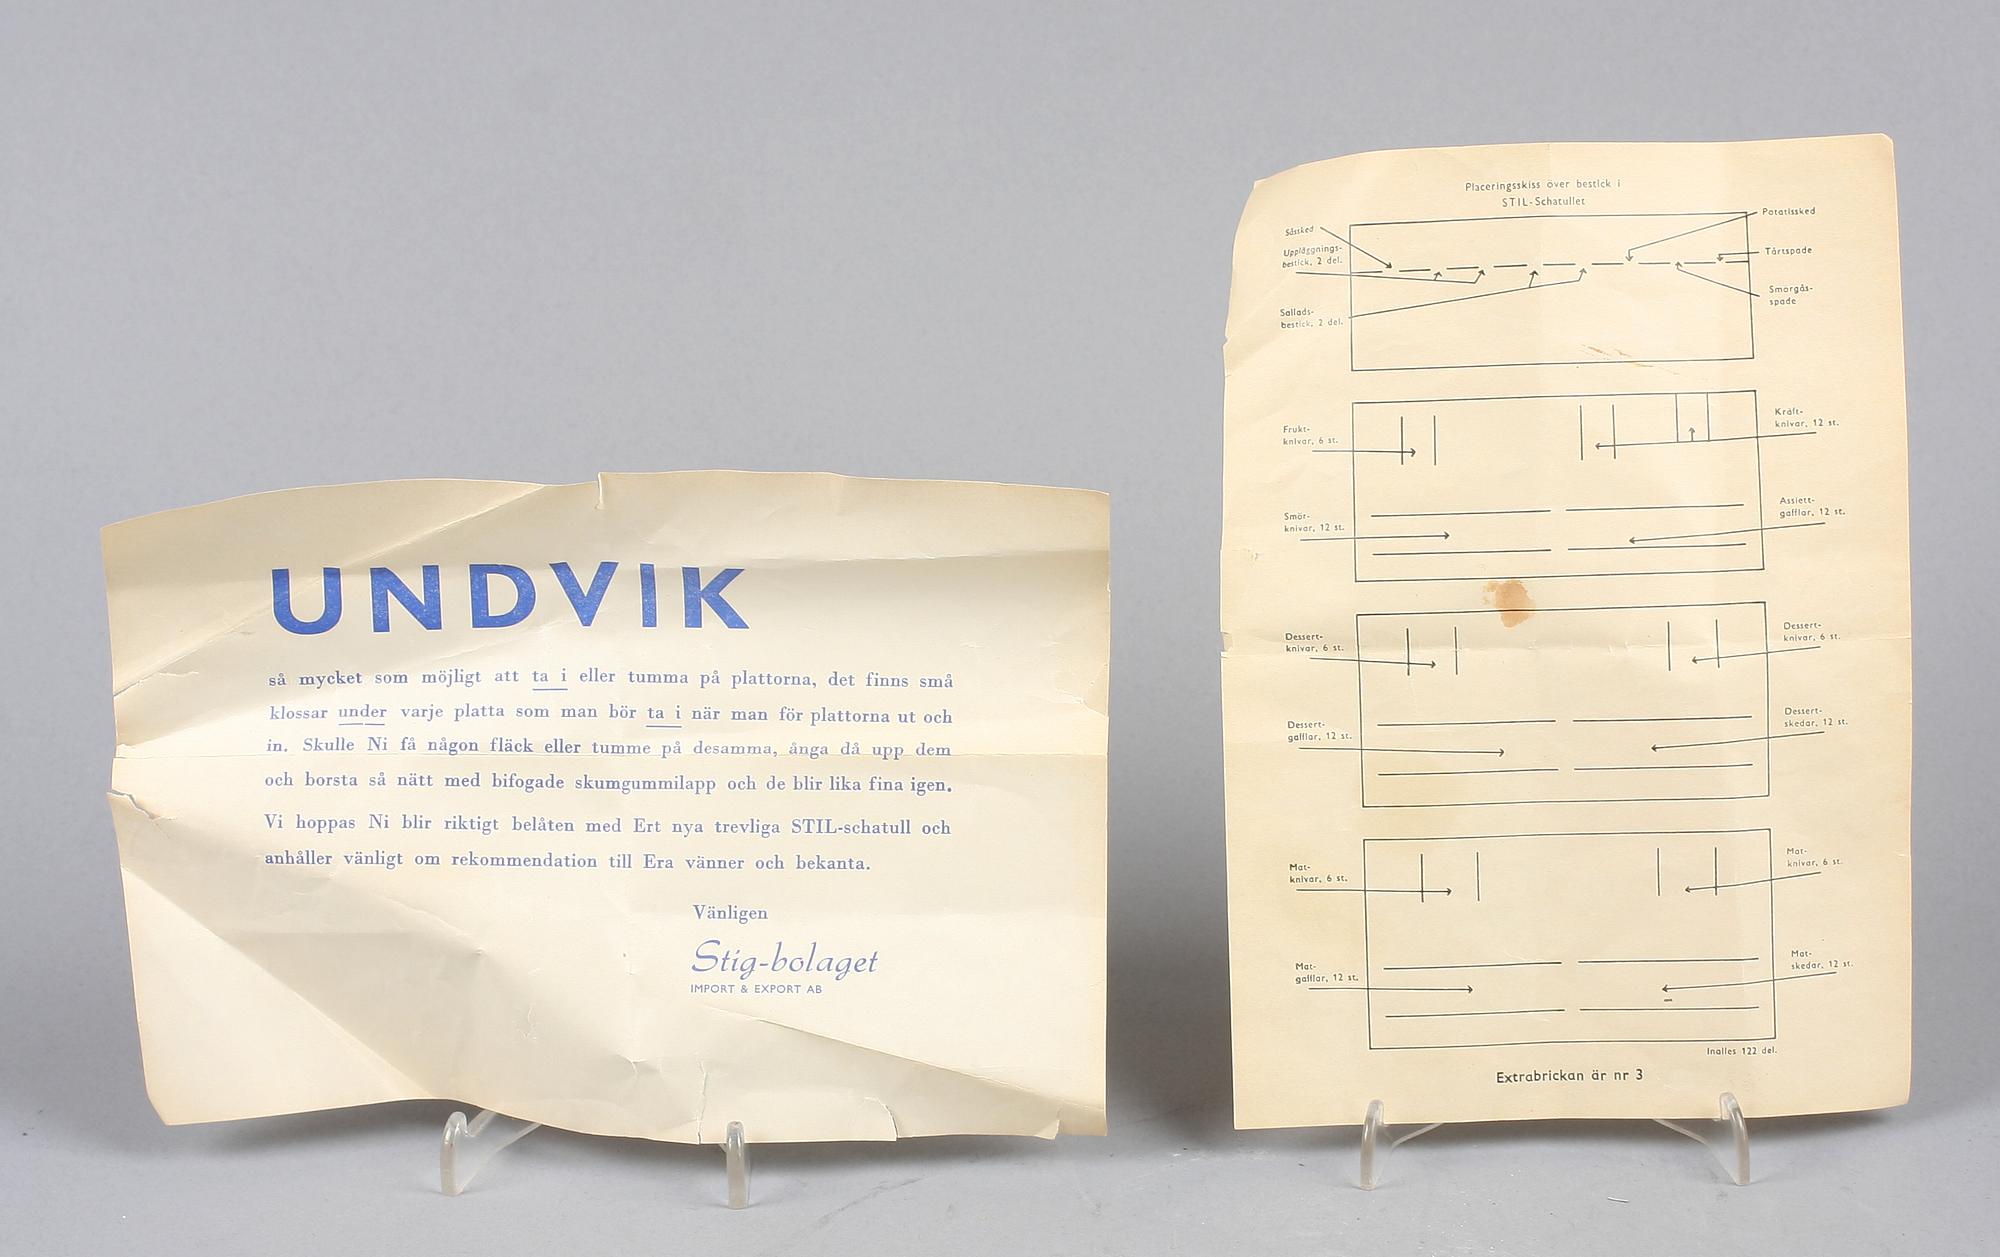 UNDVIK
så mycket som möjligt att ta i eller tumma på plattorna, det finns små
klossar under varje platta som man bör ta i när man för plattorna ut och
in. Skulle Ni få någon fläck eller tumme på desamma, ånga då upp dem
och borsta så nätt med bifogade skumgummilapp och de blir lika fina igen.
Vi hoppas Ni blir riktigt belåten med Ert nya trevliga STIL-schatull och
anhåller vänligt om rekommendation till Era vänner och bekanta.
Vänligen
Stig-bolaget
IMPORT & EXPORT AB
Placeringsskiss över bestick i
STIL-Schatullet
Såssked
Uppläggnings-
bestick, 2 del.
Sallads-
bestick, 2 del.
Potatissked
Tårtspade
Smörgås-
spade
Frukt-
knivar, 6 st.
Kräft-
knivar, 12 st.
Smör-
knivar, 12 st.
Assiett-
gafflar, 12 st.
Dessert-
knivar, 6 st.
Dessert-
knivar, 6 st.
Dessert-
gafflar, 12 st.
Dessert-
skedar, 12 st.
Mat-
knivar, 6 st.
Mat-
knivar, 6 st.
Mat-
gafflar, 12 st.
Mat-
skedar, 12 st.
Inalles 122 del.
Extrabrickan är nr 3